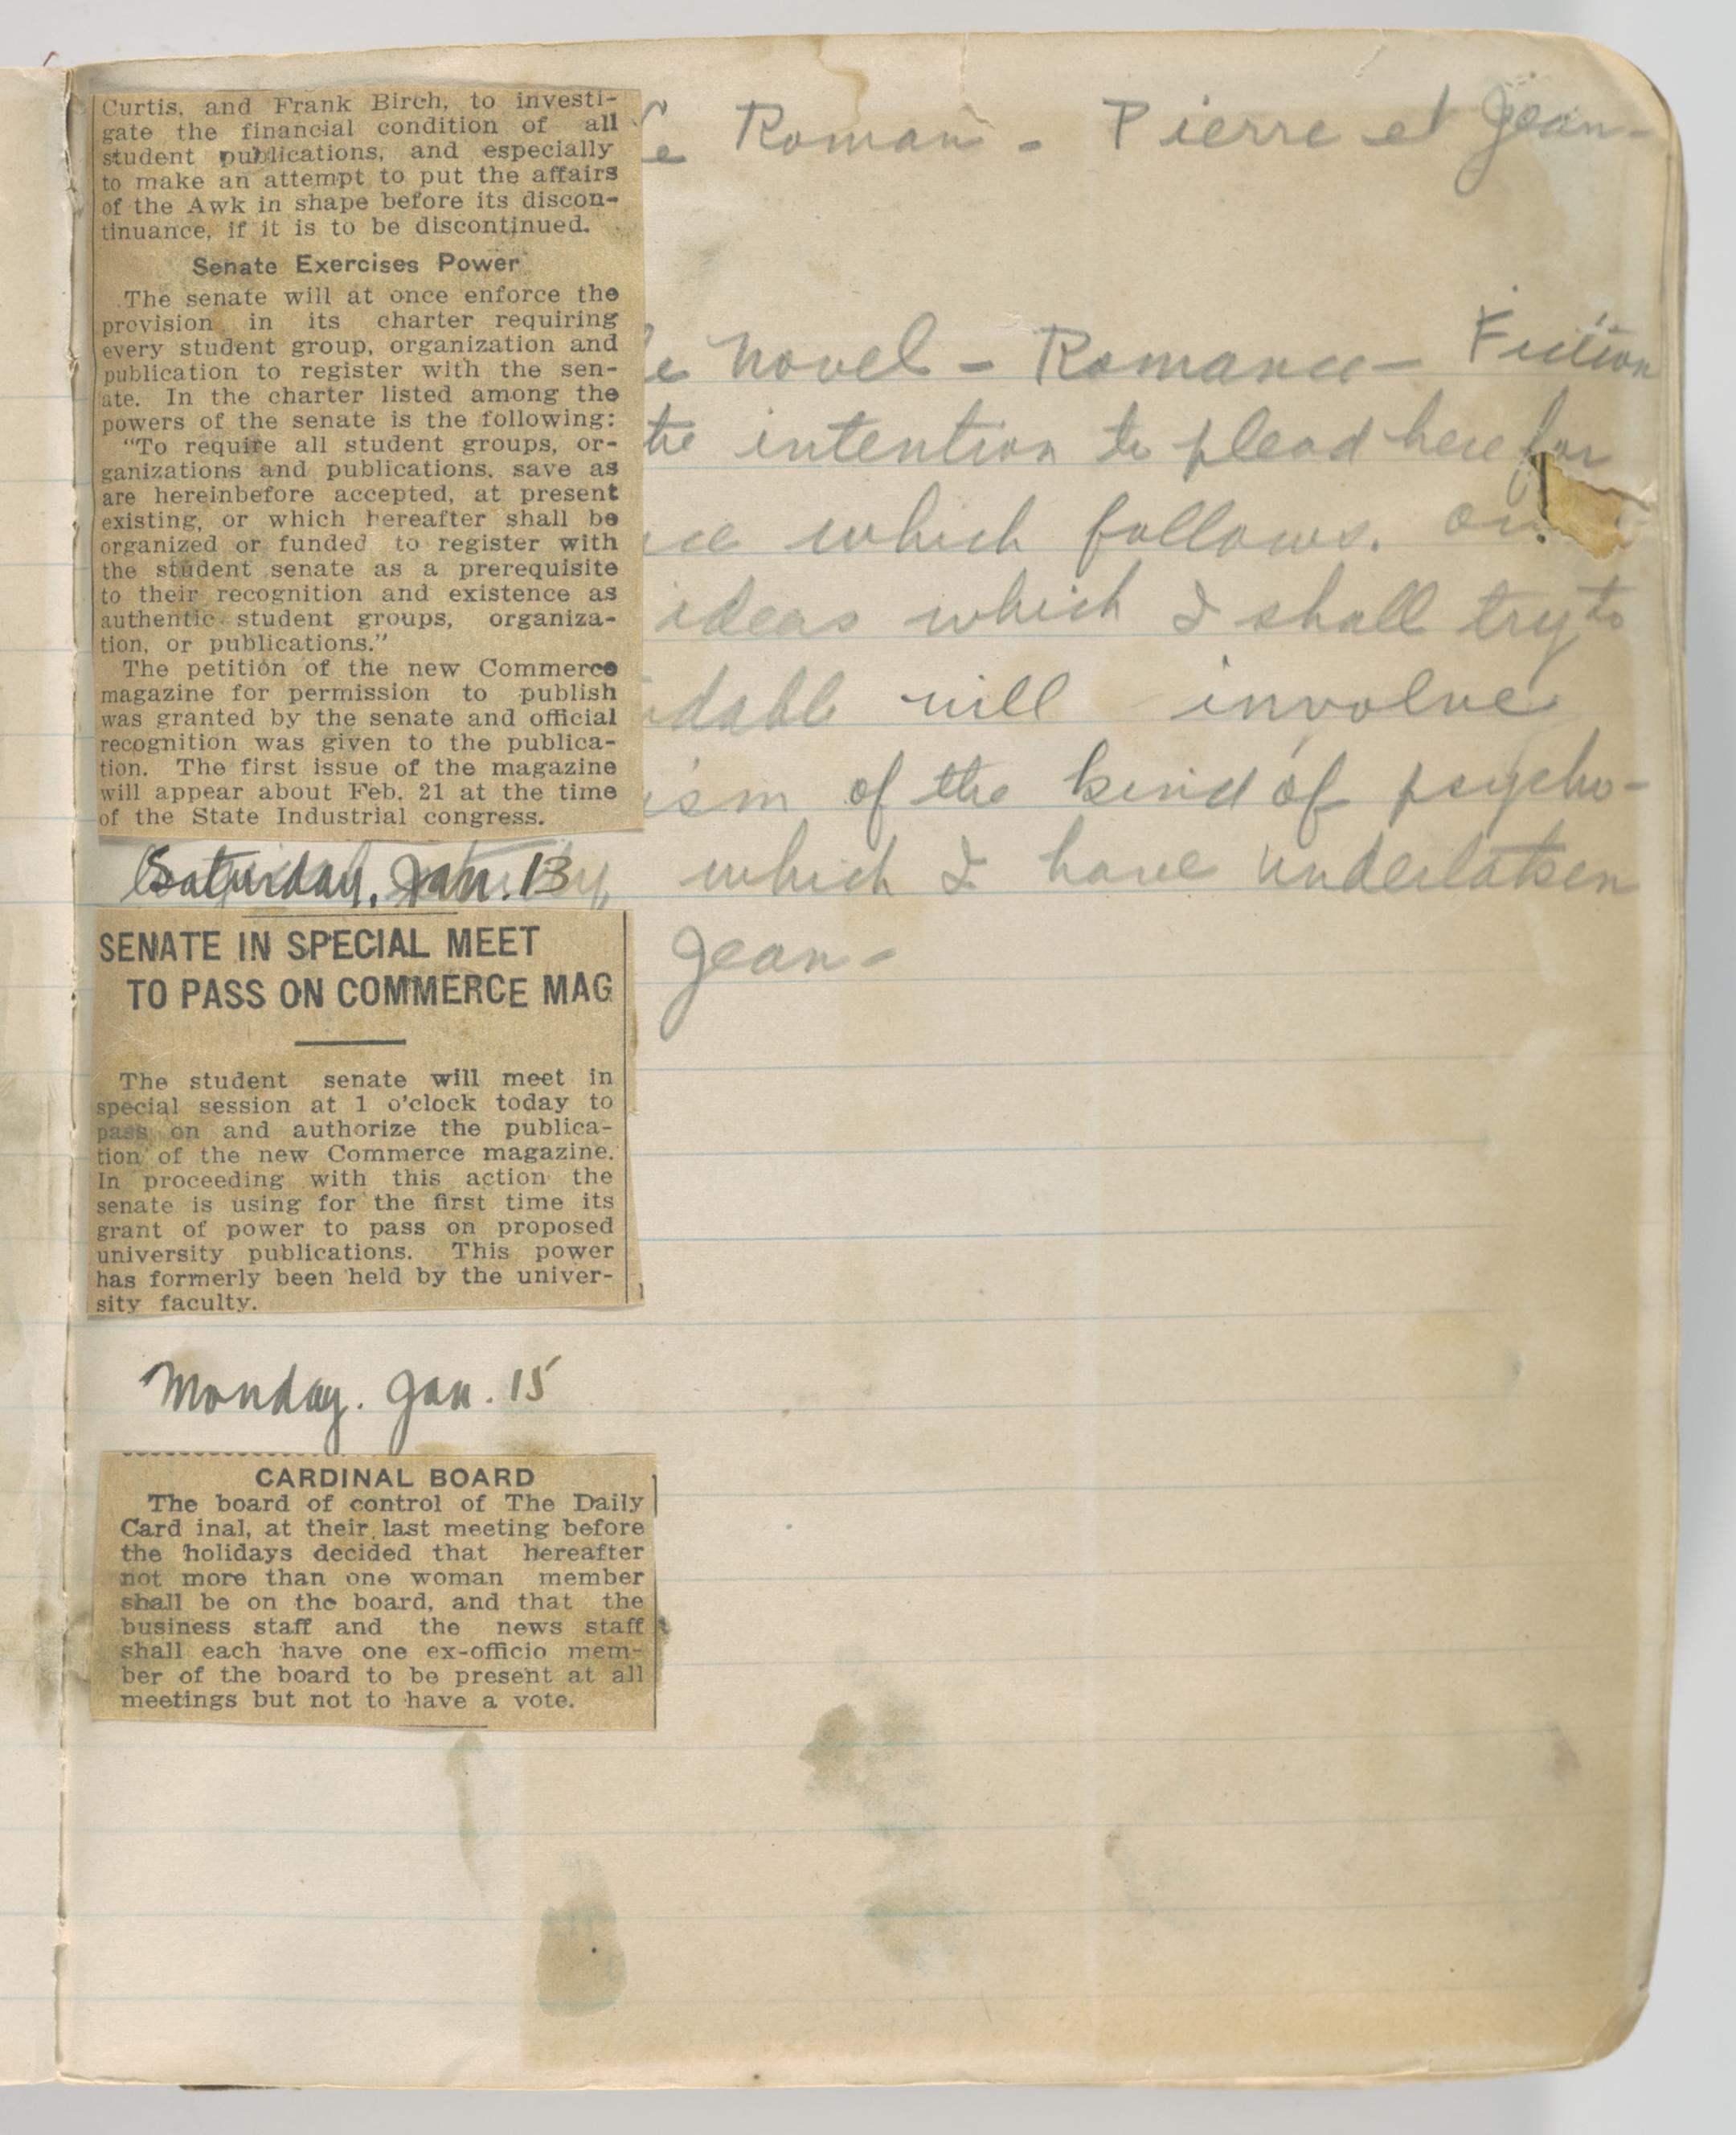 Curtis, and Frank Birch, to investi-
gate the financial condition of all
student publications, and especially
to make an attempt to put the affairs
of the Awk in shape before its discon-
tinuance, if it is to be discontinued.
Senate Exercises Power
The senate will at once enforce the
provision in its charter requiring
every student group, organization and
publication to register with the sen-
ate. In the charter listed among the
powers of the senate is the following:
"To require all student groups, or-
ganizations and publications, save as
are hereinbefore accepted, at present
existing, or which hereafter shall be
organized or funded to register with
the student senate as a prerequisite
to their recognition and existence as
authentic student groups, organiza-
tion, or publications."
The petition of the new Commerce
magazine for permission to publish
was granted by the senate and official
recognition was given to the publica-
tion. The first issue of the magazine
will appear about Feb. 21 at the time
of the State Industrial congress.
Saturday, Jan. 13
SENATE IN SPECIAL MEET
TO PASS ON COMMERCE MAG
The student senate will meet in
special session at 1 o'clock today to
pass on and authorize the publica-
tion of the new Commerce magazine.
In proceeding with this action the
senate is using for the first time its
grant of power to pass on proposed
university publications. This power
has formerly been held by the univer-
sity faculty.
Monday. Jan. 15
CARDINAL BOARD
The board of control of The Daily
Card inal, at their last meeting before
the holidays decided that hereafter
not more than one woman member
shall be on the board, and that the
business staff and the news staff
shall each have one ex-officio mem-
ber of the board to be present at all
meetings but not to have a vote.
Roman - Pierre et Jean-
novel - Romance - Fiction
intention to plead here for
which follows.
ideas which I shall try to
will involve
ism of the kind of psycho-
which I have undertaken
Jean-